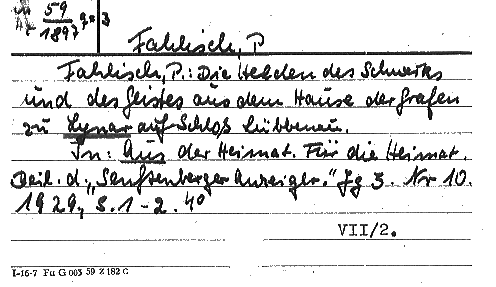 59
1897
Fahlisch, P
Fahlisch, P.: Die Helden des Schwerts
und des Geistes aus dem Hause der Grafen
zu Lynar auf Schloß Lübbenau.
In: Aus der Heimat. Für die Heimat.
Beil. d. „Senftenberger Anzeiger." Jg 3. Nr 10.
1929, S. 1-2. 4°
VII/2.
I-16-7 Fu G 003 59 Z 182 C